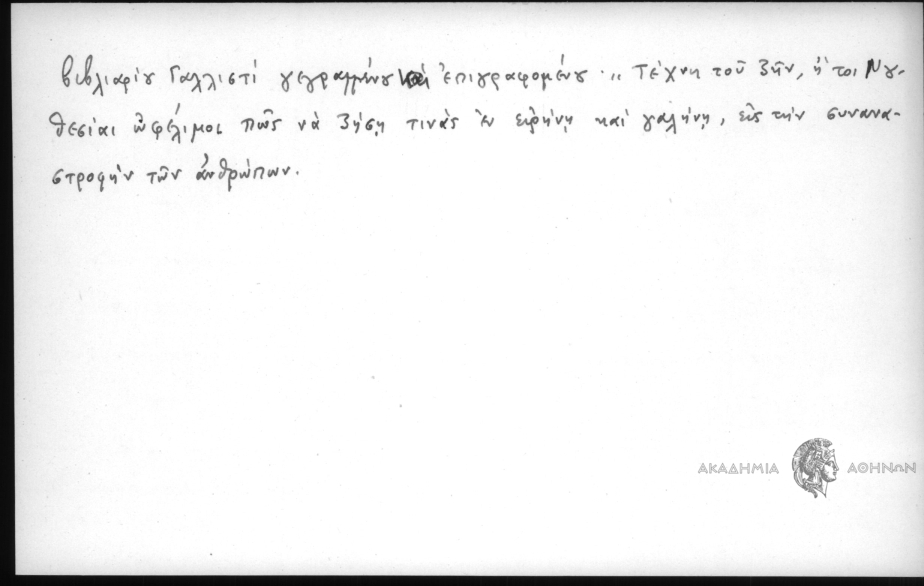 βιβλιαρίου Γαλλιστί γεγραμμένου καὶ ἐπιγραφομένου· „ Τέχνη τοῦ ζῆν, ἤτοι Νου-
θεσίαι ὠφέλιμοι πῶς νὰ ζήσῃ τινὰς ἐν εἰρήνῃ καὶ γαλήνῃ, εἰς τὴν συνανα-
στροφὴν τῶν ἀνθρώπων.
ΑΚΑΔΗΜΙΑ ΑΘΗΝΩΝ